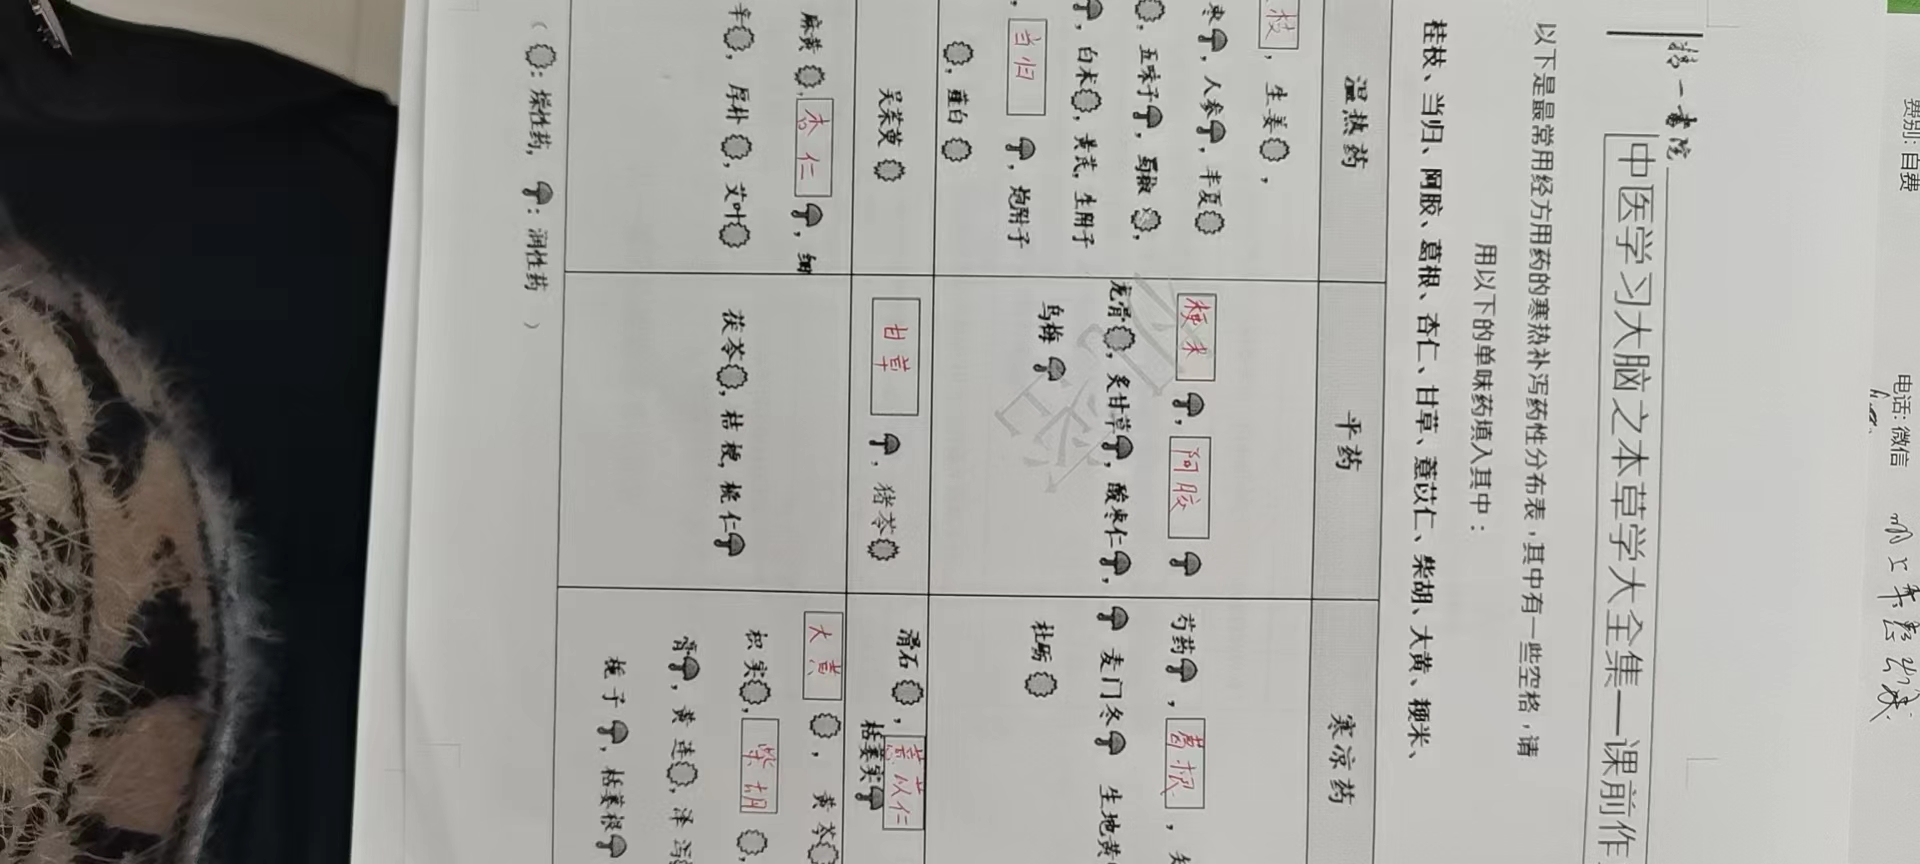 费别: 自费
电话: 微信
精一书院
中医学习大脑之本草学大全集—课前作
以下是最常用经方用药的寒热补泻药性分布表，其中有一些空格，请
用以下的单味药填入其中：
桂枝、当归、阿胶、葛根、杏仁、甘草、薏苡仁、柴胡、大黄、粳米、
温热药
平药
寒凉药
枝，生姜，
枣，人参，半夏
，五味子，蜀椒，
，白术，黄芪，生附子
，当归，炮附子
，薤白
粳米，阿胶
龙骨，炙甘草，酸枣仁，
乌梅
芍药，葛根，
麦门冬 生地黄
牡蛎
吴茱萸
甘草，猪苓
滑石，薏苡仁
栝蒌实
麻黄，杏仁，细
辛，厚朴，艾叶
茯苓，桔梗，桃仁
大黄，黄芩
枳实，柴胡，
膏，黄连，泽泻
栀子，栝蒌根
（：燥性药，：润性药）